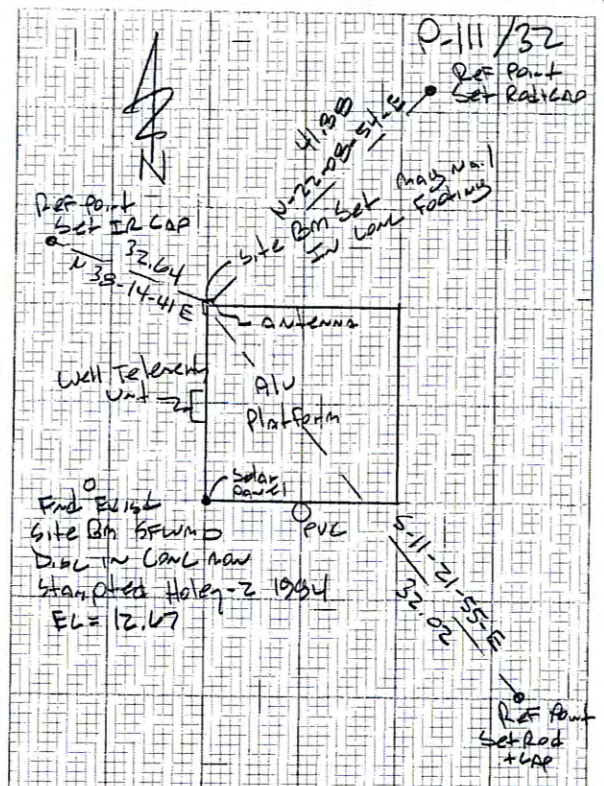 P-111/32
Ref Point
Set Rod+CAP
41.38
N-22-08-54-E
N
Ref Point
Set IR CAP
32.64
N 38-14-41 E
Site Bm Set Mag Nail
IN Conc Footing
antenna
Well Telemetry
Unit
Alu
Platform
Solar
Panel
PVC
Fnd Exist
Site Bm SFWMD
Disc IN Conc Mon
Stampted Holey-2 1994
EL = 12.67
S-11-21-55-E
32.02
Ref Point
Set Rod
+CAP